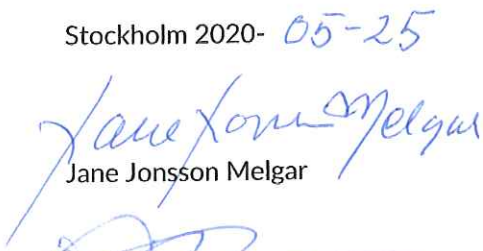 Stockholm 2020- 05-25
Jane Jonsson Melgar
Jane Jonsson Melgar